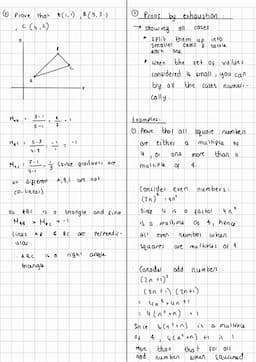 Prove that A(1,1), B(3,3)
, C(4,2)
M_AB = 3-1 / 3-1 = 2/2 = 1
M_BC = = -1
M_AC = 2-1 / 4-1 = 1/3 (since gradients are
all different A,B,C are not
co-linear)
So ABC is a triangle and since
M_AB × M_BC = -1
Lines AB & BC are perpendic-
ular
∴ ABC is a right angle
triangle
Proof by exhaustion:
→ showing all cases
• split them up into
smaller cases & solve
each one
• when the set of values
considered is small, you can
try all the cases numeri-
cally.
Examples:
① Prove that all square numbers
are either a multiple of
4, or one more than a
multiple of 4
Consider even numbers:
(2n)² = 4n²
Since 4 is a factor 4n²
is a multiple of 4, hence
all even number when
squares are multiples of 4
Consider odd number:
(2n+1)²
(2n+1)(2n+1)
= 4n² + 4n + 1
= 4(n²+n) + 1
Since 4(n²+n) is a multiple
of 4, 4(n²+n)+1 is 1
more than that for all
odd number when squared